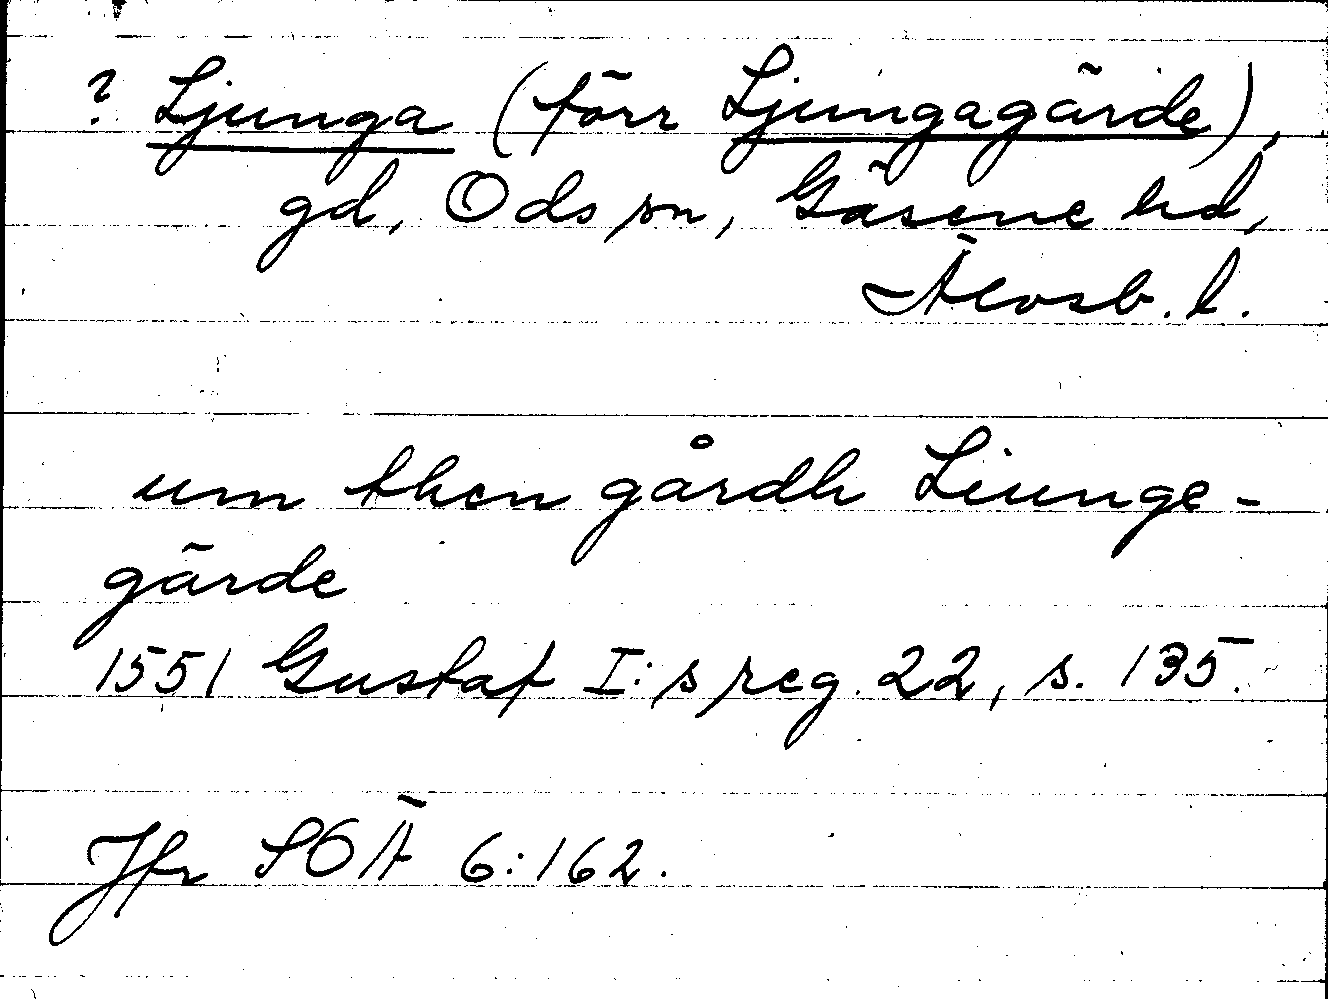 ? Ljunga (förr Ljungagärde),
gd, Ods sn, Gäsene hd,
Älvsb. l.
um then gårdh Liunge-
gärde
1551 Gustaf I:s reg. 22, s. 135.
Jfr SOÄ 6:162.